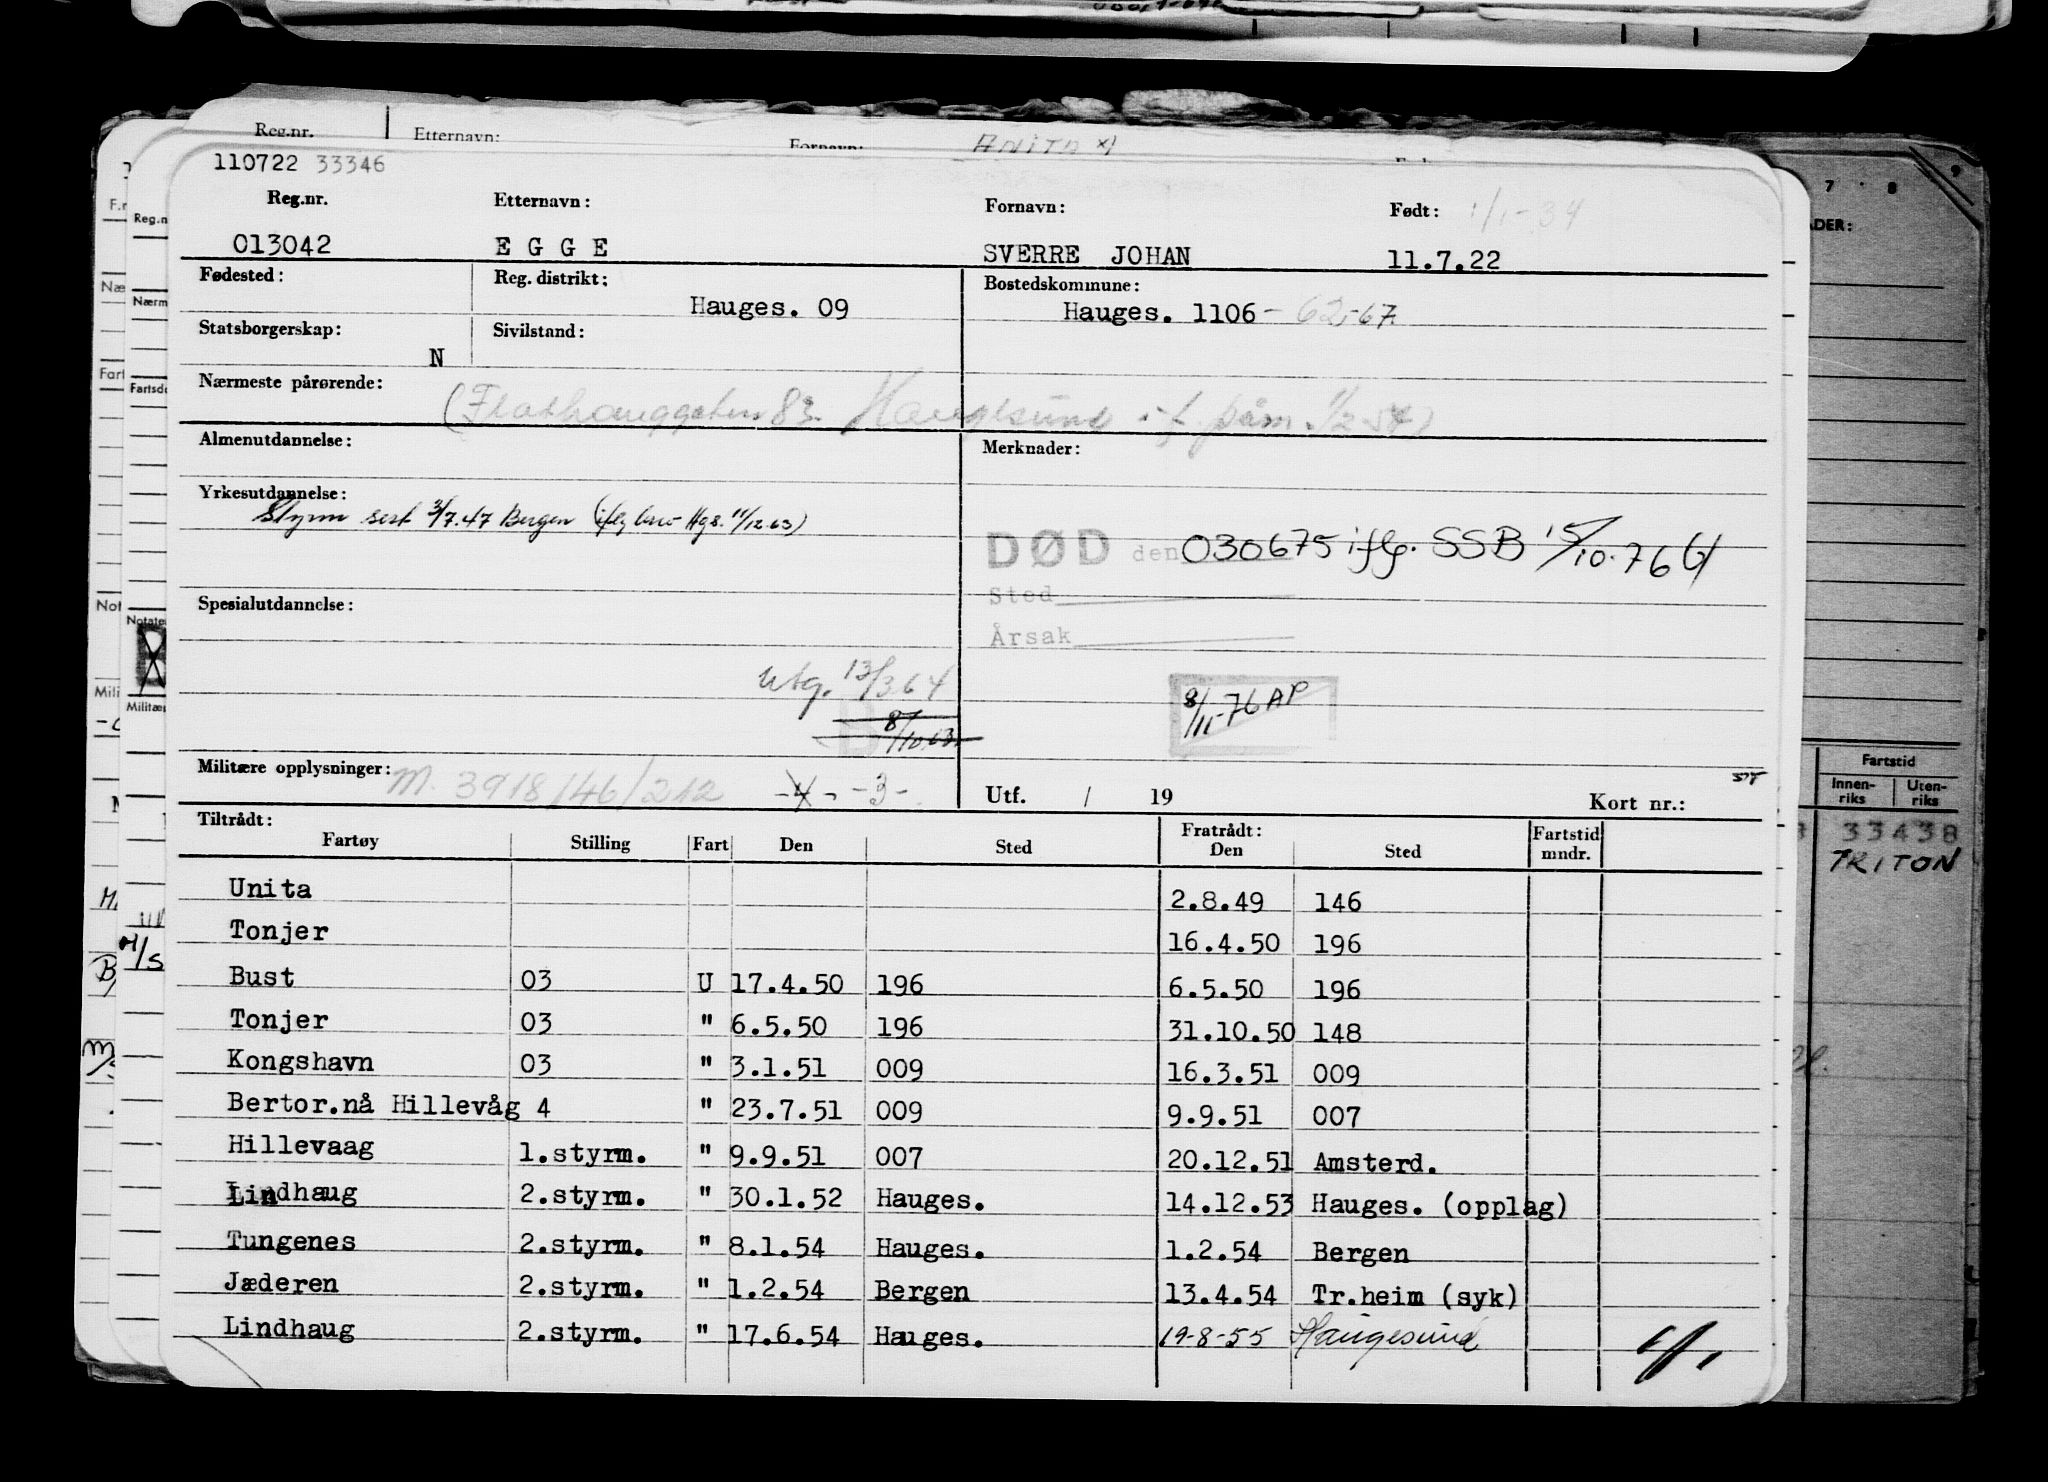 Reg.nr. Etternavn: Fornavn: ANITA
110722 33346
Reg.nr. Etternavn: Fornavn: Født: 1/1-34
013042 E G G E SVERRE JOHAN 11.7.22
Fødested: Reg. distrikt: Bostedskommune:
Hauges. 09 Hauges. 1106 - 62,-67.
Statsborgerskap: Sivilstand:
N
Nærmeste pårørende:
(Flathauggaten 83 Haugesund if. påm. 1/2 54)
Almenutdannelse: Merknader:
Yrkesutdannelse:
Styrm sert 3/7.47 Bergen (iflg brev Hgs. 11/12.63)
DØD den 030675 iflg. SSB 15/10.76
Sted
Årsak
Spesialutdannelse:
Utg. 13/3 64
8/10.63
8/11-76 AP
Militære opplysninger: M. 3918/46/212 -4- -3-
Utf. / 19 Kort nr.:
Tiltrådt: Fratrådt:
Fartøy Stilling Fart Den Sted Den Sted Fartstid mndr.
Unita 2.8.49 146
Tonjer 16.4.50 196
Bust 03 U 17.4.50 196 6.5.50 196
Tonjer 03 " 6.5.50 196 31.10.50 148
Kongshavn 03 " 3.1.51 009 16.3.51 009
Bertor.nå Hillevåg 4 " 23.7.51 009 9.9.51 007
Hillevaag 1.styrm. " 9.9.51 007 20.12.51 Amsterd.
Lindhaug 2.styrm. " 30.1.52 Hauges. 14.12.53 Hauges. (opplag)
Tungenes 2.styrm. " 8.1.54 Hauges. 1.2.54 Bergen
Jæderen 2.styrm. " 1.2.54 Bergen 13.4.54 Tr.heim (syk)
Lindhaug 2.styrm. " 17.6.54 Hauges. 19-8-55 Haugesund
7 8 9
Fartstid
Innen-riks Uten-riks
33438
TRITON